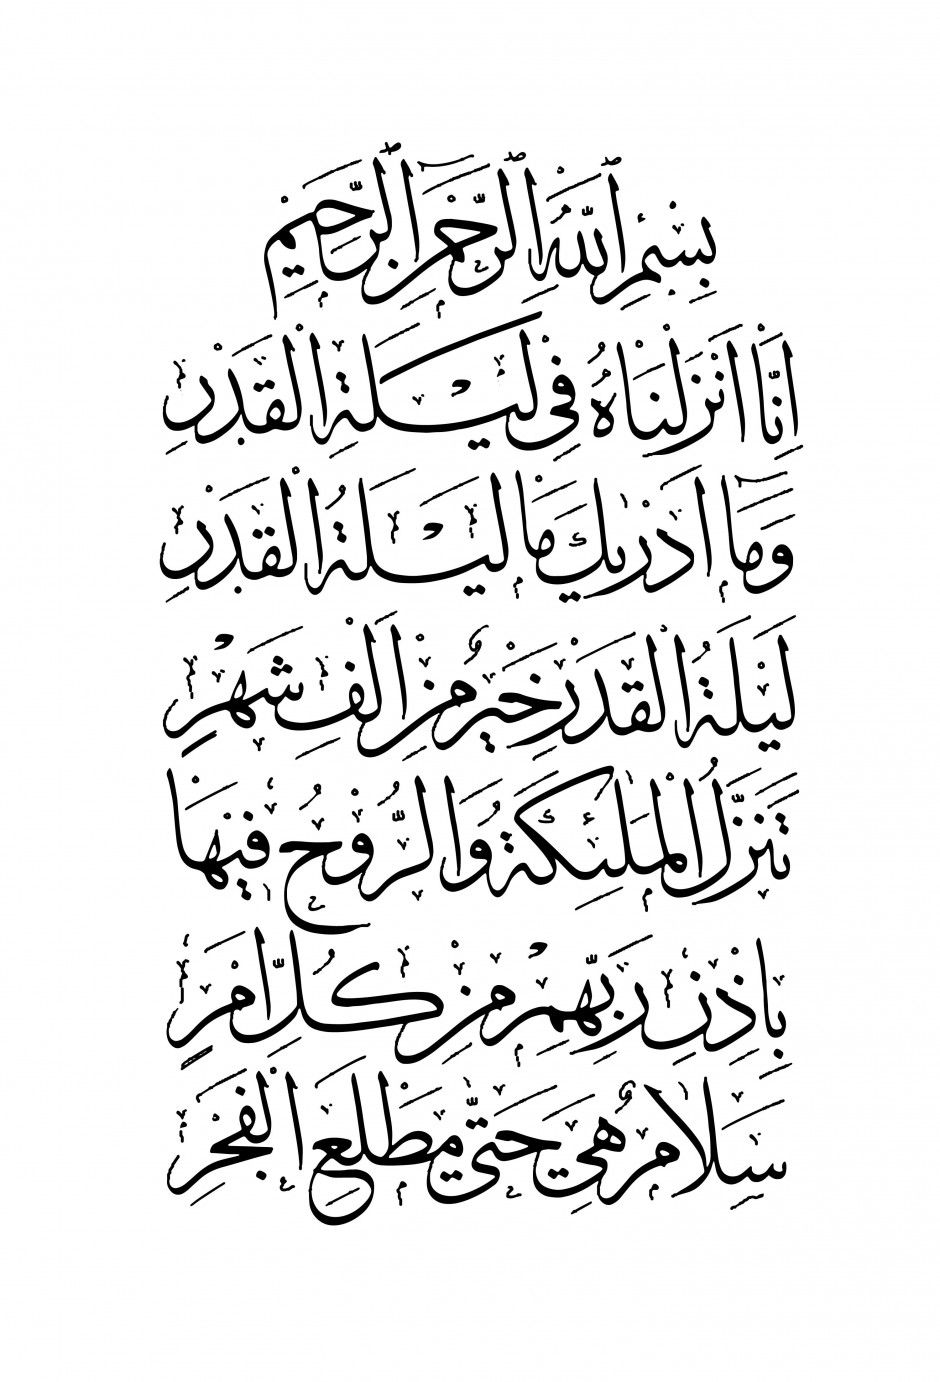 بِسْمِ ٱللَّهِ ٱلرَّحْمَٰنِ ٱلرَّحِيمِ
اِنَّا اَنْزَلْنَاهُ فِى لَيْلَةِ الْقَدْرِ
وَمَا اَدْرٰيكَ مَا لَيْلَةُ الْقَدْرِ
لَيْلَةُ الْقَدْرِ خَيْرٌ مِنْ اَلْفِ شَهْرٍ
تَنَزَّلُ الْمَلٰئِكَةُ وَالرُّوحُ فِيهَا
بِاِذْنِ رَبِّهِمْ مِنْ كُلِّ اَمْرٍ
سَلَامٌ هِىَ حَتّٰى مَطْلَعِ الْفَجْرِ